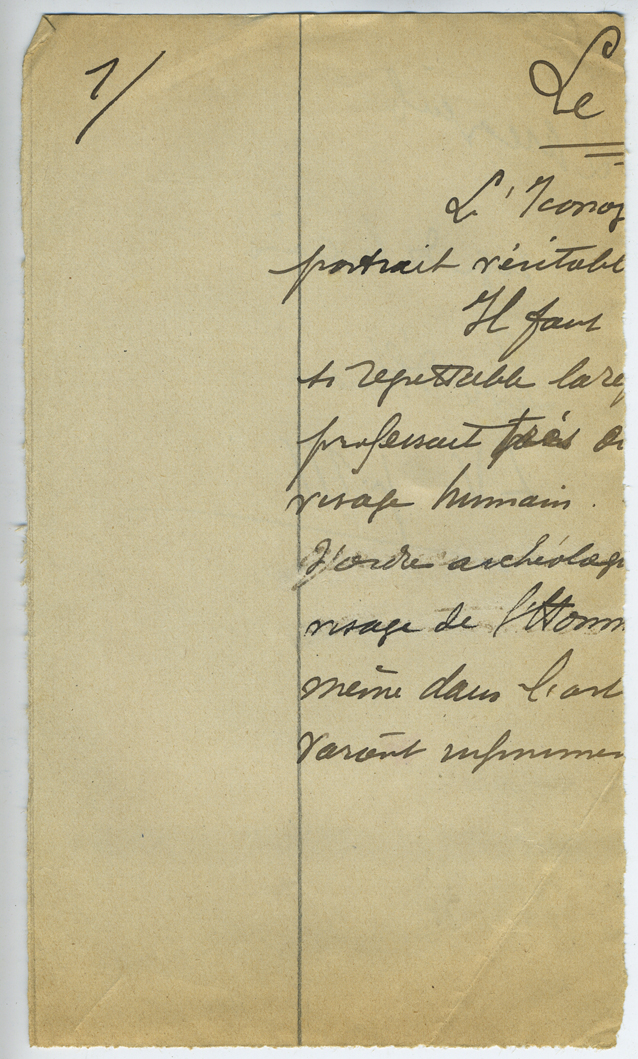 1/
Le
L'Iconog
portrait véritabl
Il faut
si regrettable la
professait très
visage humain.
d'ordre archéolog
visage de l'Homm
même dans l'art
varient infinimen